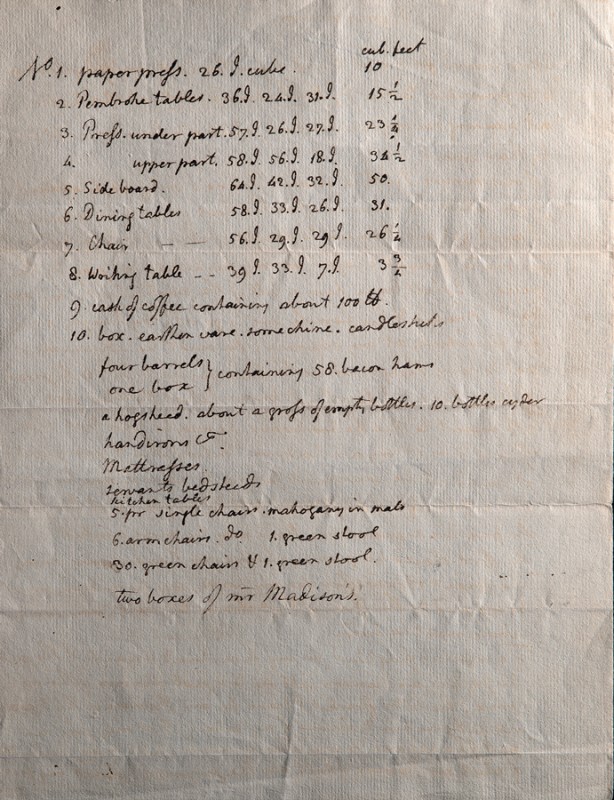 cub. feet
No. 1. paper press. 26. I. cube. 10
2. Pembroke tables. 36.I. 24.I. 31.I. 15 1/2
3. Press. under part. 57.I. 26.I. 27.I. 23 1/4
4. upper part. 58.I. 56.I. 18.I. 34 1/2
5. Side board. 64.I. 42.I. 32.I. 50.
6. Dining tables 58.I. 33.I. 26.I. 31.
7. Chair — — 56.I. 29.I. 29.I. 26 1/4
8. Working table - - 39 I. 33.I. 7.I. 3 3/4
9. cask of coffee containing about 100 lb.
10. box. earthen ware. some chine. candlesticks
four barrels } containing 58. bacon hams
one box
a hogshead. about a gross of empty bottles. 10. bottles cyder
handirons &c.
Mattrasses.
servants bedsteads
kitchen tables
5. pr single chairs. mahogany in mats
6. arm chairs. do 1. green stool
30. green chairs & 1. green stool.
two boxes of mr Madison's.